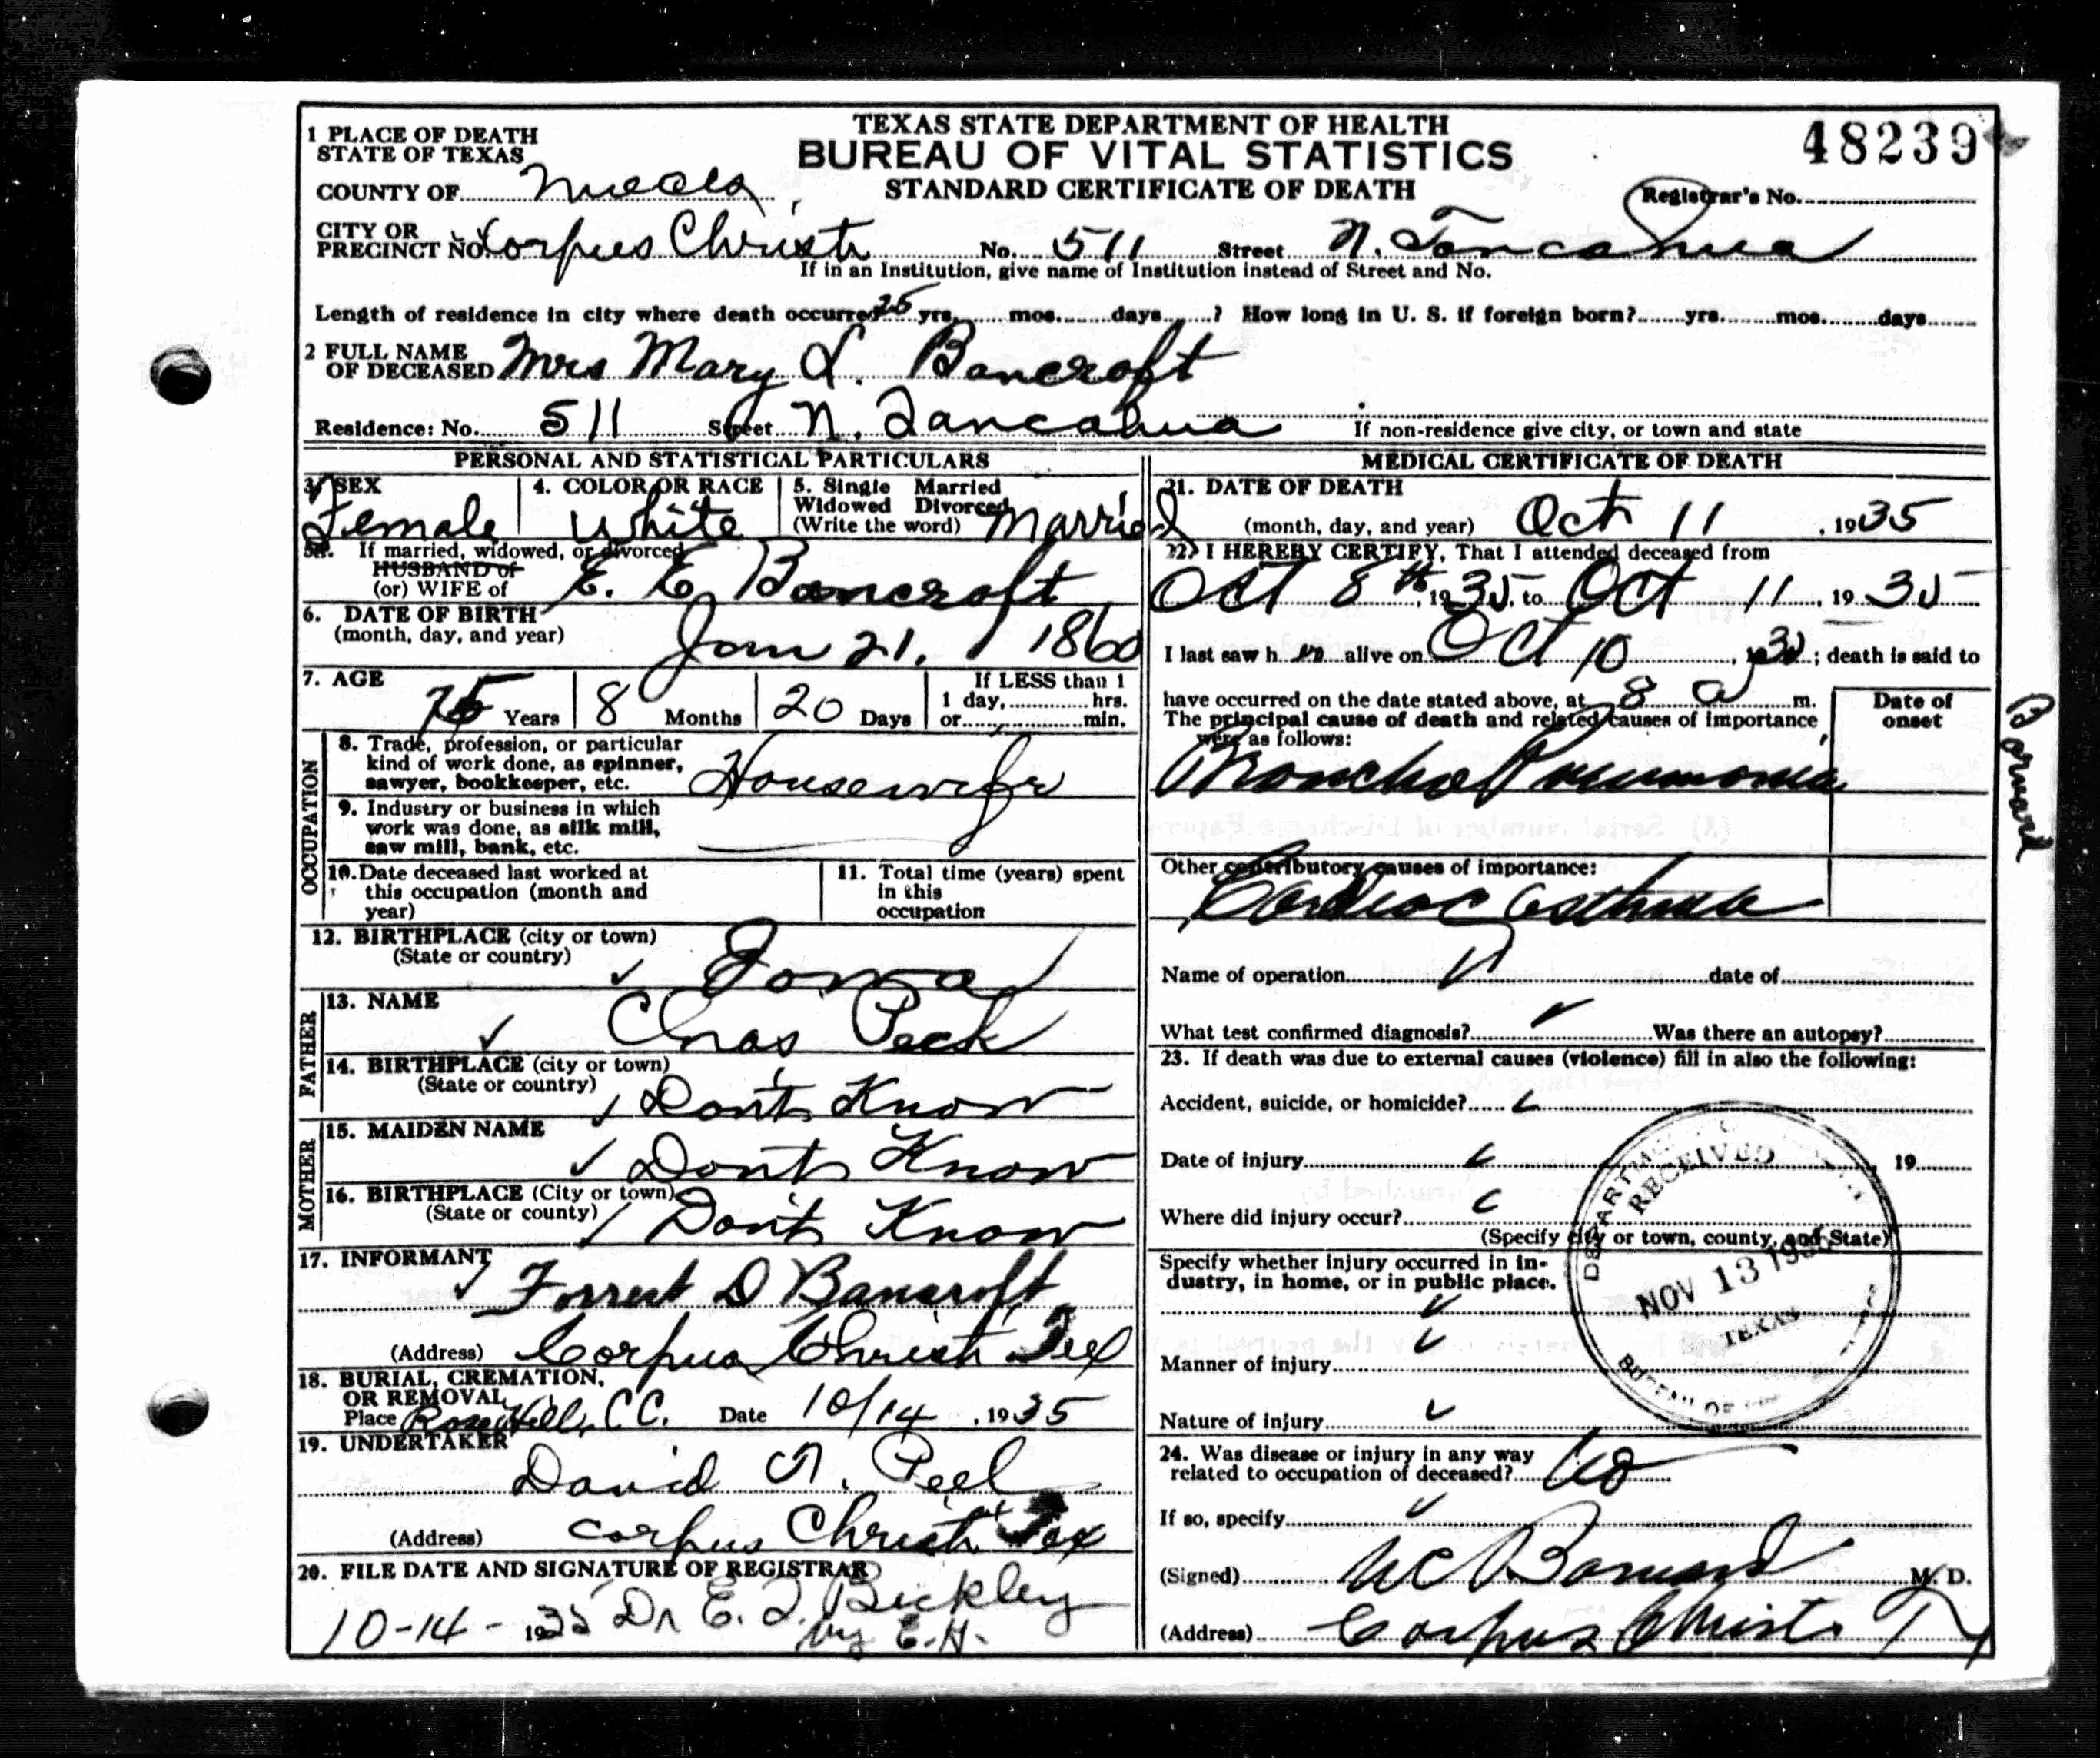 TEXAS STATE DEPARTMENT OF HEALTH
BUREAU OF VITAL STATISTICS
STANDARD CERTIFICATE OF DEATH
48239
Registrar's No.
1 PLACE OF DEATH
STATE OF TEXAS
COUNTY OF Nueces
CITY OR
PRECINCT NO. Corpus Christi No. 511 Street N. Tancahua
If in an Institution, give name of Institution instead of Street and No.
Length of residence in city where death occurred 25 yrs. mos. days ? How long in U. S. if foreign born? yrs. mos. days
2 FULL NAME
OF DECEASED Mrs Mary L. Bancroft
Residence: No. 511 Street N. Tancahua If non-residence give city, or town and state
PERSONAL AND STATISTICAL PARTICULARS
3. SEX
Female
4. COLOR OR RACE
White
5. Single Married
Widowed Divorced
(Write the word) Married
5a. If married, widowed, or divorced
HUSBAND of
(or) WIFE of E. E. Bancroft
6. DATE OF BIRTH
(month, day, and year) Jan 21, 1860
7. AGE
75 Years 8 Months 20 Days
If LESS than 1
1 day, hrs.
or min.
OCCUPATION
8. Trade, profession, or particular
kind of work done, as spinner,
sawyer, bookkeeper, etc. Housewife
9. Industry or business in which
work was done, as silk mill,
saw mill, bank, etc.
10. Date deceased last worked at
this occupation (month and
year)
11. Total time (years) spent
in this
occupation
12. BIRTHPLACE (city or town)
(State or country) Iowa
FATHER
13. NAME Chas Peck
14. BIRTHPLACE (city or town)
(State or country) Don't Know
MOTHER
15. MAIDEN NAME Don't Know
16. BIRTHPLACE (City or town)
(State or county) Don't Know
17. INFORMANT
Forrest D Bancroft
(Address) Corpus Christi Tex
18. BURIAL, CREMATION,
OR REMOVAL
Place Rose Hill, C C. Date 10/14, 1935
19. UNDERTAKER
David A. Peel
(Address) Corpus Christi Tex
20. FILE DATE AND SIGNATURE OF REGISTRAR
10-14-1935 Dr E. J. Bickley
by E.H.
MEDICAL CERTIFICATE OF DEATH
21. DATE OF DEATH
(month, day, and year) Oct 11, 1935
22. I HEREBY CERTIFY, That I attended deceased from
Oct 8th, 1935, to Oct 11, 1935
I last saw h alive on Oct 10, ; death is said to
have occurred on the date stated above, at 8 a m.
The principal cause of death and related causes of importance
were as follows:
Date of
onset
Broncho Pneumonia
Other contributory causes of importance:
Cardiac Asthma
Name of operation date of
What test confirmed diagnosis? Was there an autopsy?
23. If death was due to external causes (violence) fill in also the following:
Accident, suicide, or homicide?
Date of injury , 19
Where did injury occur?
(Specify city or town, county, and State)
Specify whether injury occurred in in-
dustry, in home, or in public place.
Manner of injury
Nature of injury
24. Was disease or injury in any way
related to occupation of deceased? No
If so, specify
(Signed) W C Barnard M. D.
(Address) Corpus Christi Tx
RECEIVED
NOV 13 1935
TEXAS
Barnard